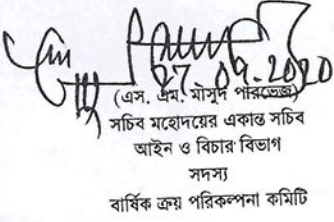 27.09.2020
(এস. এম. মাসুদ পারভেজ)
সচিব মহোদয়ের একান্ত সচিব
আইন ও বিচার বিভাগ
সদস্য
বার্ষিক ক্রয় পরিকল্পনা কমিটি